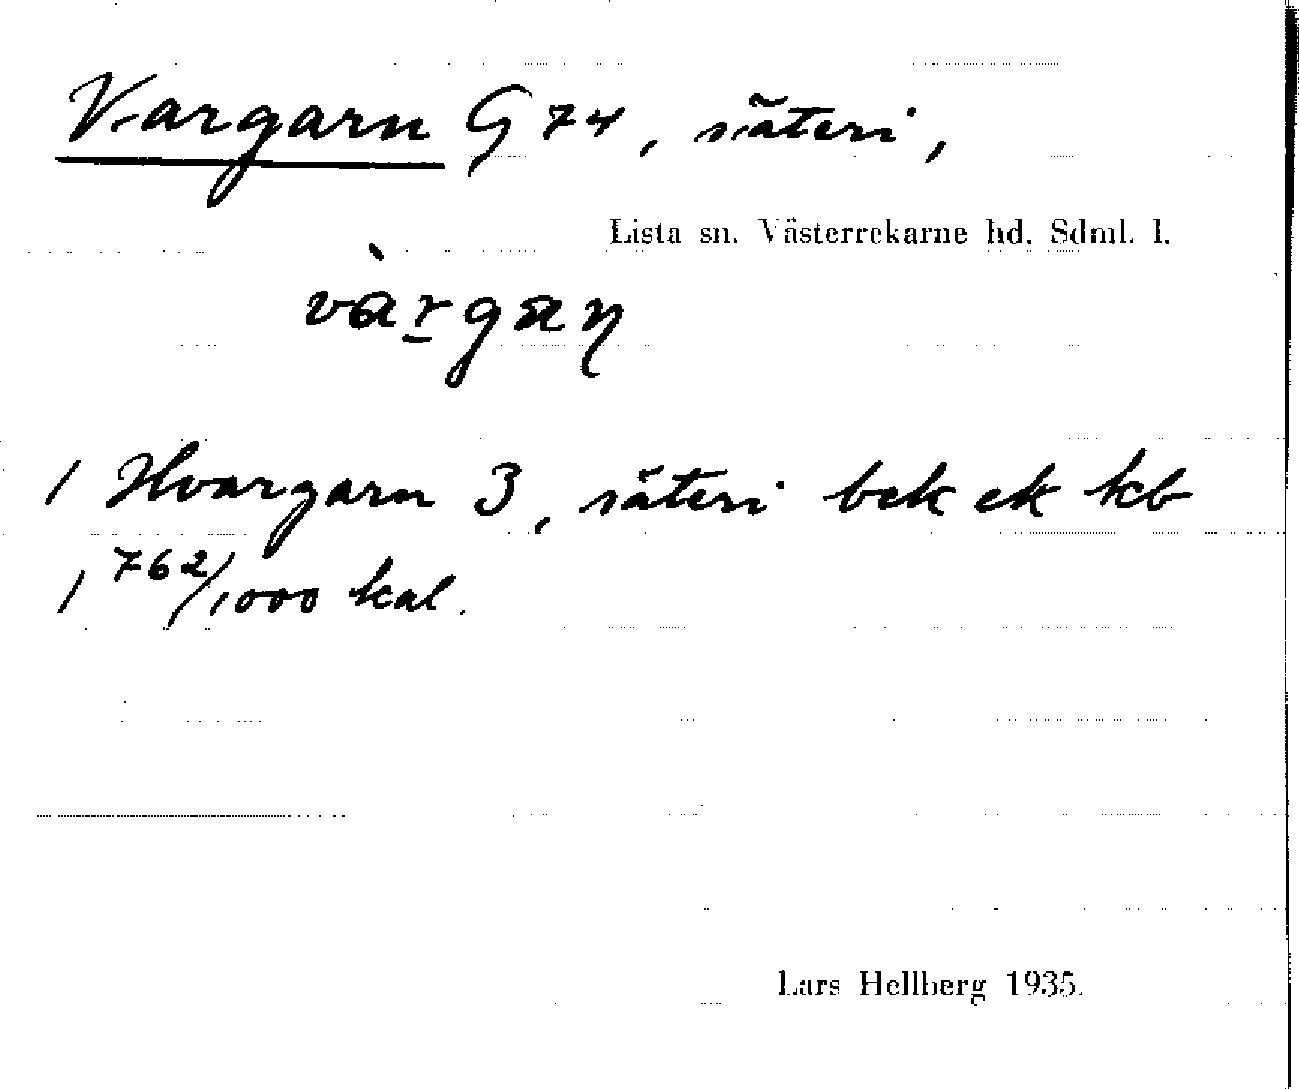 Vargarn G 74, säteri,
Lista sn. Västerrekarne hd. Sdml. l.
vàr̠gaɳ
1 Hvargarn 3, säteri bek ek kb
1 762/1000 kal.
Lars Hellberg 1935.